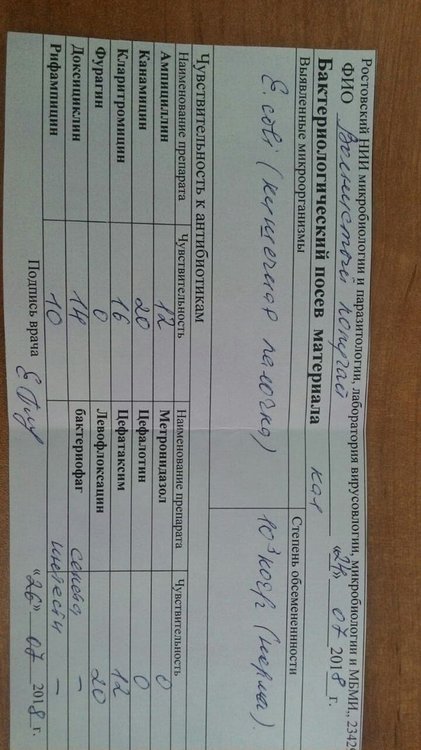 Ростовский НИИ микробиологии и паразитологии, лаборатория вирусовлогии, микробиологии и МБМИ,, 2342
ФИО Волнистый попугай «24» 07 2018 г.
Бактериологический посев материала кал
Выявленные микроорганизмы Степень обсемененнности
E. coli (кишечная палочка) 10³ КОЕ/г (норма).
Чувствительность к антибиотикам
Наименование препарата Чувствительность Наименование препарата Чувствительность
Ампициллин 12 Метронидазол 0
Канамицин 20 Цефалотин 0
Кларитромицин 16 Цефатаксим 12
Фурагин 0 Левофлоксацин 20
Доксициклин 14 бактериофаг секста –
Рифампицин 10 интести –
Подпись врача «26» 07 2018 г.